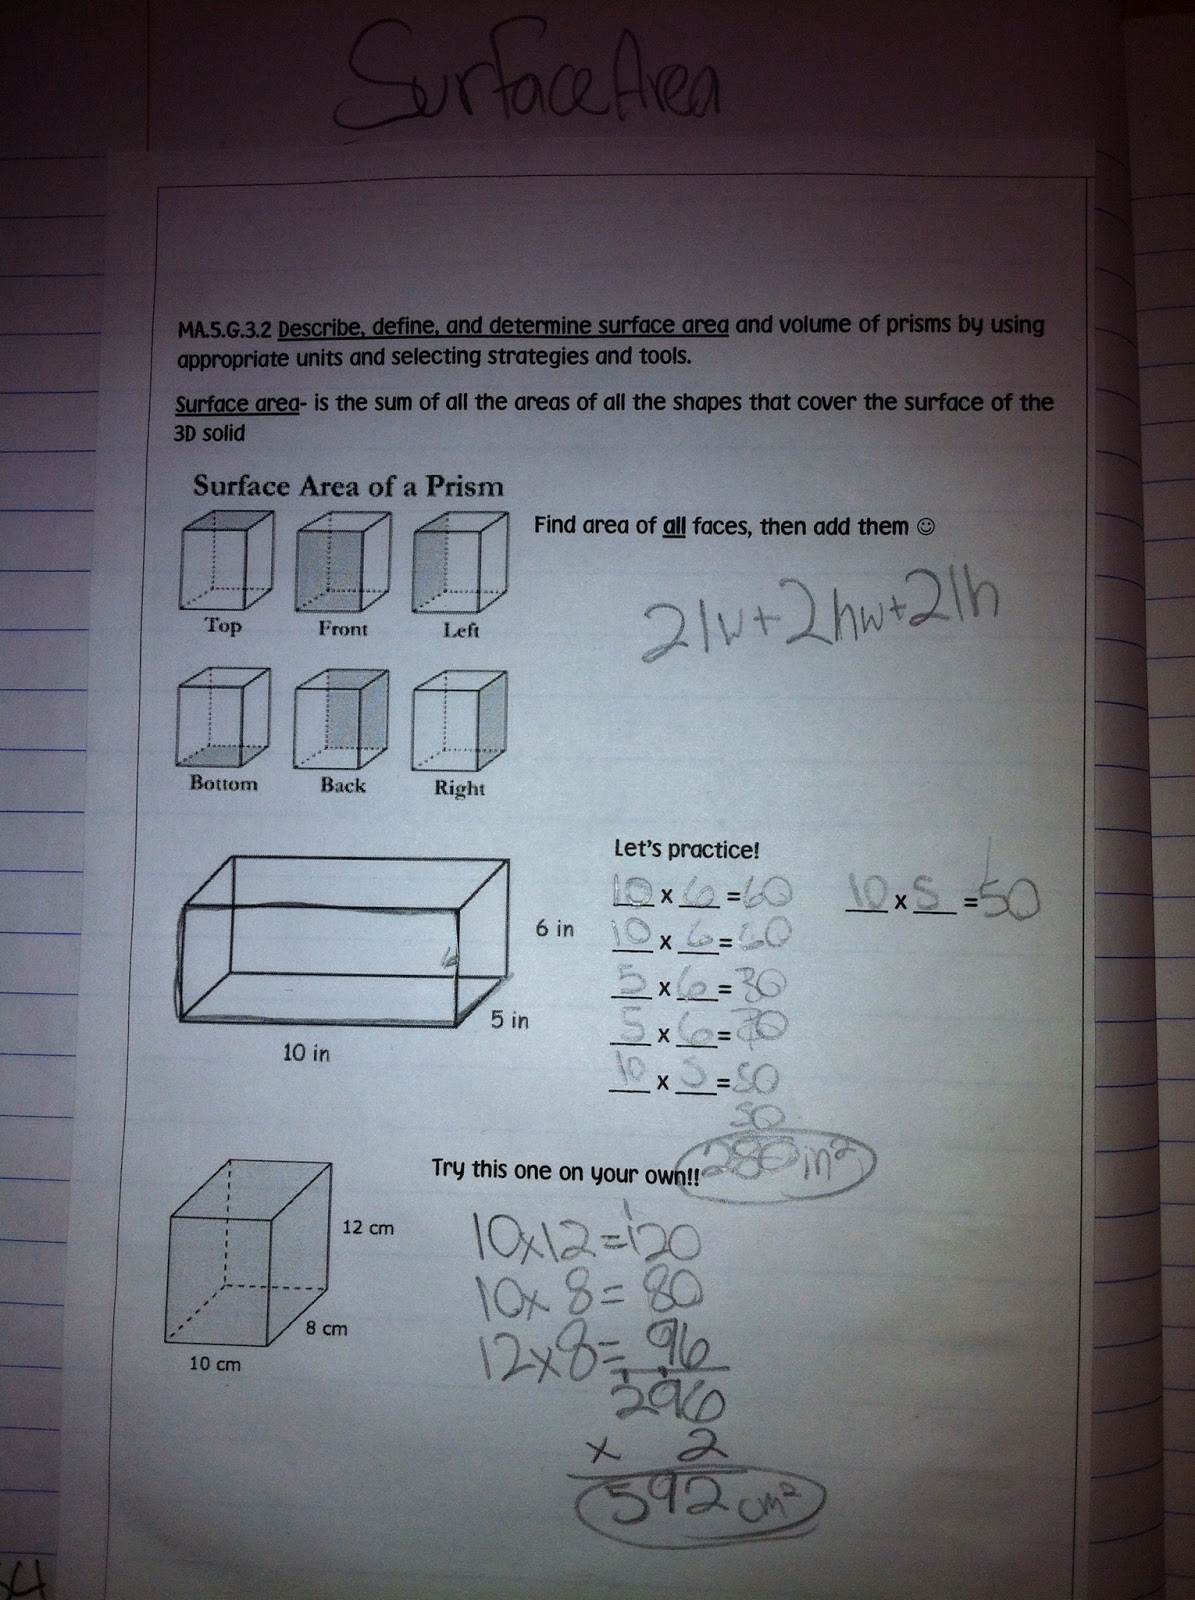 Surface Area
MA.5.G.3.2 Describe, define, and determine surface area and volume of prisms by using
appropriate units and selecting strategies and tools.
Surface area- is the sum of all the areas of all the shapes that cover the surface of the
3D solid
Surface Area of a Prism
Find area of all faces, then add them ☺
Top Front Left
2lw+2hw+2lh
Bottom Back Right
Let's practice!
10 x 6 =60
10 x 6 =60
5 x 6 =30
5 x 6 =30
10 x 5 =50
50
280 in²
10 x 5 =50
6 in
6
5 in
10 in
Try this one on your own!!
12 cm
8 cm
10 cm
10x12=120
10x 8= 80
12x8= 96
296
x 2
592 cm²